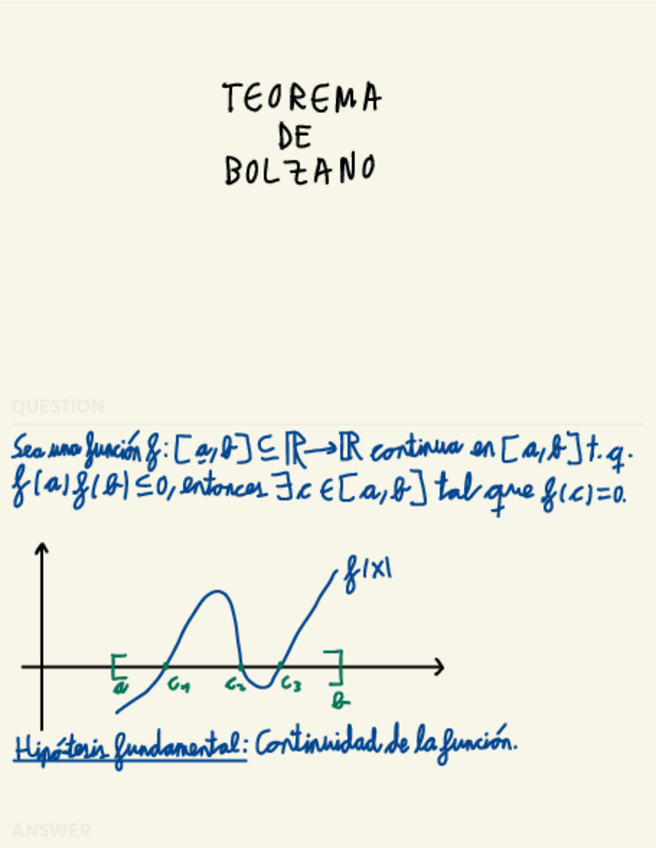 TEOREMA
DE
BOLZANO
QUESTION
Sea una función f: [a,b] ⊆ ℝ → ℝ continua en [a,b] t.q.
f(a)f(b) ≤ 0, entonces ∃c ∈ [a,b] tal que f(c)=0.
f(x)
a c₁ c₂ c₃ b
Hipótesis fundamental: Continuidad de la función.
ANSWER